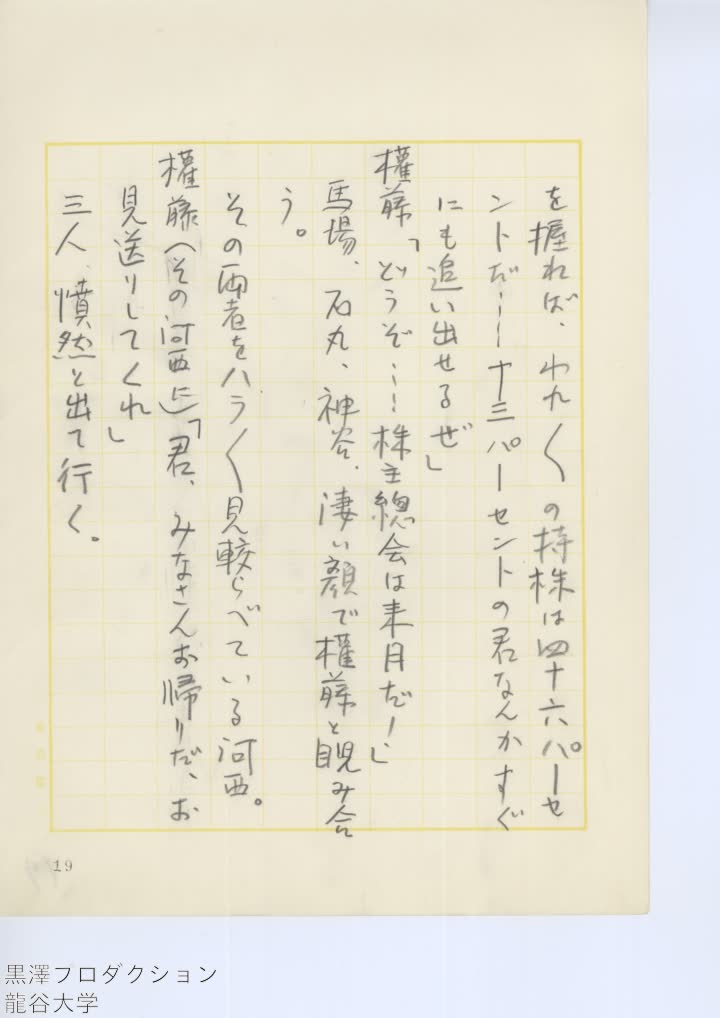 を握れば、われ〱の持株は四十六パーセ
ントだ……十三パーセントの君なんかすぐ
にも追い出せるぜ」
權藤「どうぞ……株主總会は来月だ！」
馬場、石丸、神谷、凄い顔で權藤と睨み合
う。
その両者をハラ〱見較らべている河西。
權藤（その河西に）「君、みなさんお帰りだ、お
見送りしてくれ」
三人、憤然と出て行く。
19
黒澤プロダクション
龍谷大学